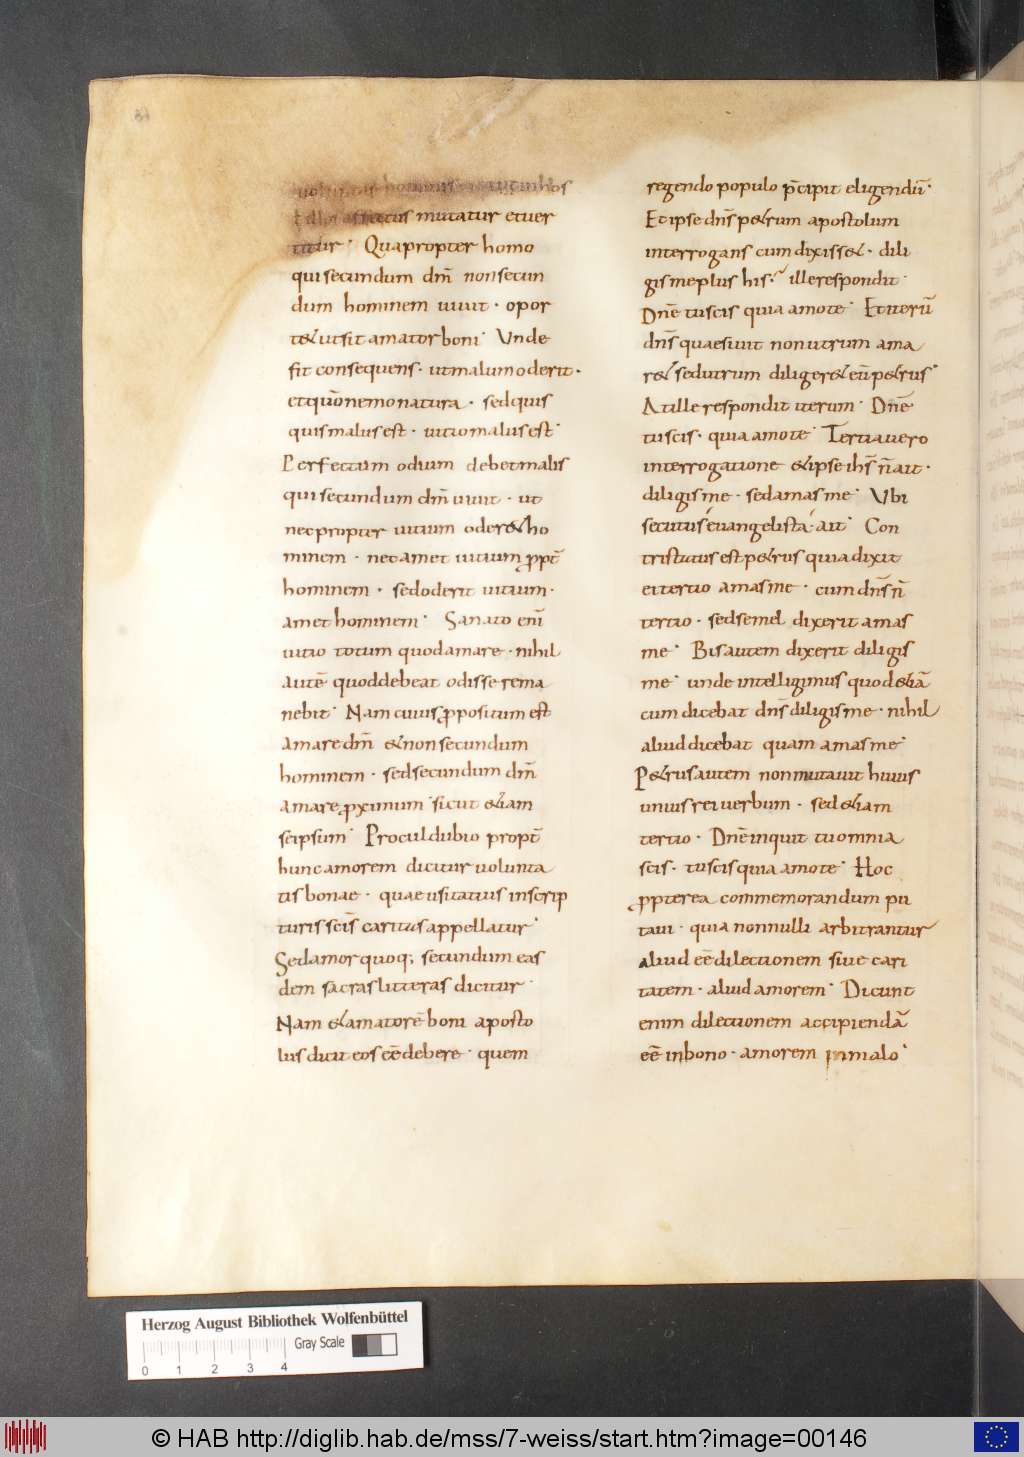 uoluntas hominis
affectus mutatur etuer
titur. Quapropter homo
qui secundum dm̄ non secun
dum hominem uiuit · opor
tet ut sit amator boni. Unde
fit consequens · ut malum oderit ·
et qūo nemo natura · sed quis
quis malus est · uitio malus est.
Perfectum odium debet malis
qui secundum dm̄ uiuit · ut
nec propter uitium oderet ho
minem · nec amet uitium ꝓpt̄
hominem · sed oderit uitium ·
amet hominem. Sanato enī
uitio totum quod amare · nihil
autē quod debeat odisse rema
nebit. Nam cuius ꝓpositum est
amare dm̄ et non secundum
hominem · sed secundum dm̄
amare ꝓximum sicut etiam
seipsum. Procul dubio propt̄
hunc amorem dicitur uolunta
tis bonae · quae usitatius in scrip
turis scīs caritas appellatur.
Sed amor quoq; secundum eas
dem sacras litteras dicitur.
Nam et amatorē boni aposto
lus dicit eos eē debere · quem
regendo populo p̄cipit eligendū.
Et ipse dn̄s petrum apostolum
interrogans cum dixisset · dili
gis me plus his · ille respondit.
Dn̄e tu scis quia amo te. Et iterū
dn̄s quaesiuit non utrum ama
ret sed utrum diligeret eū petrus.
At ille respondit iterum. Dn̄e
tu scis · quia amo te. Tertia uero
interrogatione et ipse ih̄s n̄ ait ·
diligis me · sed amas me. Ubi
secutus euangelista ait. Con
tristatus est petrus quia dixit
ei tertio amas me · cum dn̄s n̄
tertio · sed semel dixerit amas
me. Bis autem dixerit diligis
me. unde intelligimus quod etiā
cum dicebat dn̄s diligis me · nihil
aliud dicebat quam amas me.
Petrus autem non mutauit huius
unius rei uerbum · sed etiam
tertio · Dn̄e inquit tu omnia
scis · tu scis quia amo te. Hoc
ꝓpterea commemorandum pu
taui · quia nonnulli arbitrantur
aliud eē dilectionem siue cari
tatem · aliud amorem. Dicunt
enim dilectionem accipiendā
eē in bono · amorem in malo.
Herzog August Bibliothek Wolfenbüttel
Gray Scale
0 1 2 3 4
© HAB http://diglib.hab.de/mss/7-weiss/start.htm?image=00146